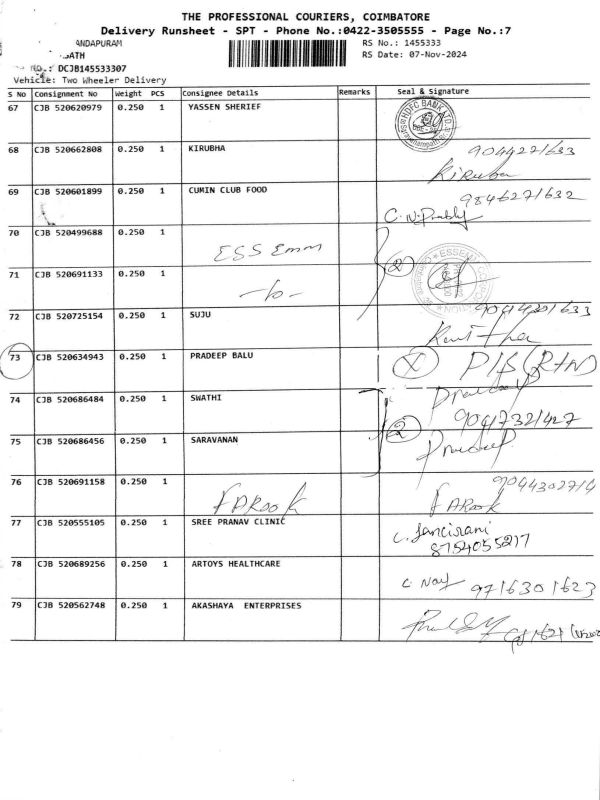 THE PROFESSIONAL COURIERS, COIMBATORE
Delivery Runsheet - SPT - Phone No.:0422-3505555 - Page No.:7
ANDAPURAM
RS No.: 1455333
RS Date: 07-Nov-2024
No.: DCJB145533307
Vehicle: Two Wheeler Delivery
S No Consignment No Weight PCS Consignee Details Remarks Seal & Signature
67 CJB 520620979 0.250 1 YASSEN SHERIEF
HDFC BANK LTD
68 CJB 520662808 0.250 1 KIRUBHA 9044271633
Kiruba
69 CJB 520601899 0.250 1 CUMIN CLUB FOOD 9846271632
70 CJB 520499688 0.250 1 ESS Emm
2
71 CJB 520691133 0.250 1 -do-
72 CJB 520725154 0.250 1 SUJU
73 CJB 520634943 0.250 1 PRADEEP BALU X
74 CJB 520686484 0.250 1 SWATHI
2
75 CJB 520686456 0.250 1 SARAVANAN
Pradeep
76 CJB 520691158 0.250 1 FAROOK
FAROOK
77 CJB 520555105 0.250 1 SREE PRANAV CLINIC C. Jancirani
8754055217
78 CJB 520689256 0.250 1 ARTOYS HEALTHCARE 9716301623
79 CJB 520562748 0.250 1 AKASHAYA ENTERPRISES